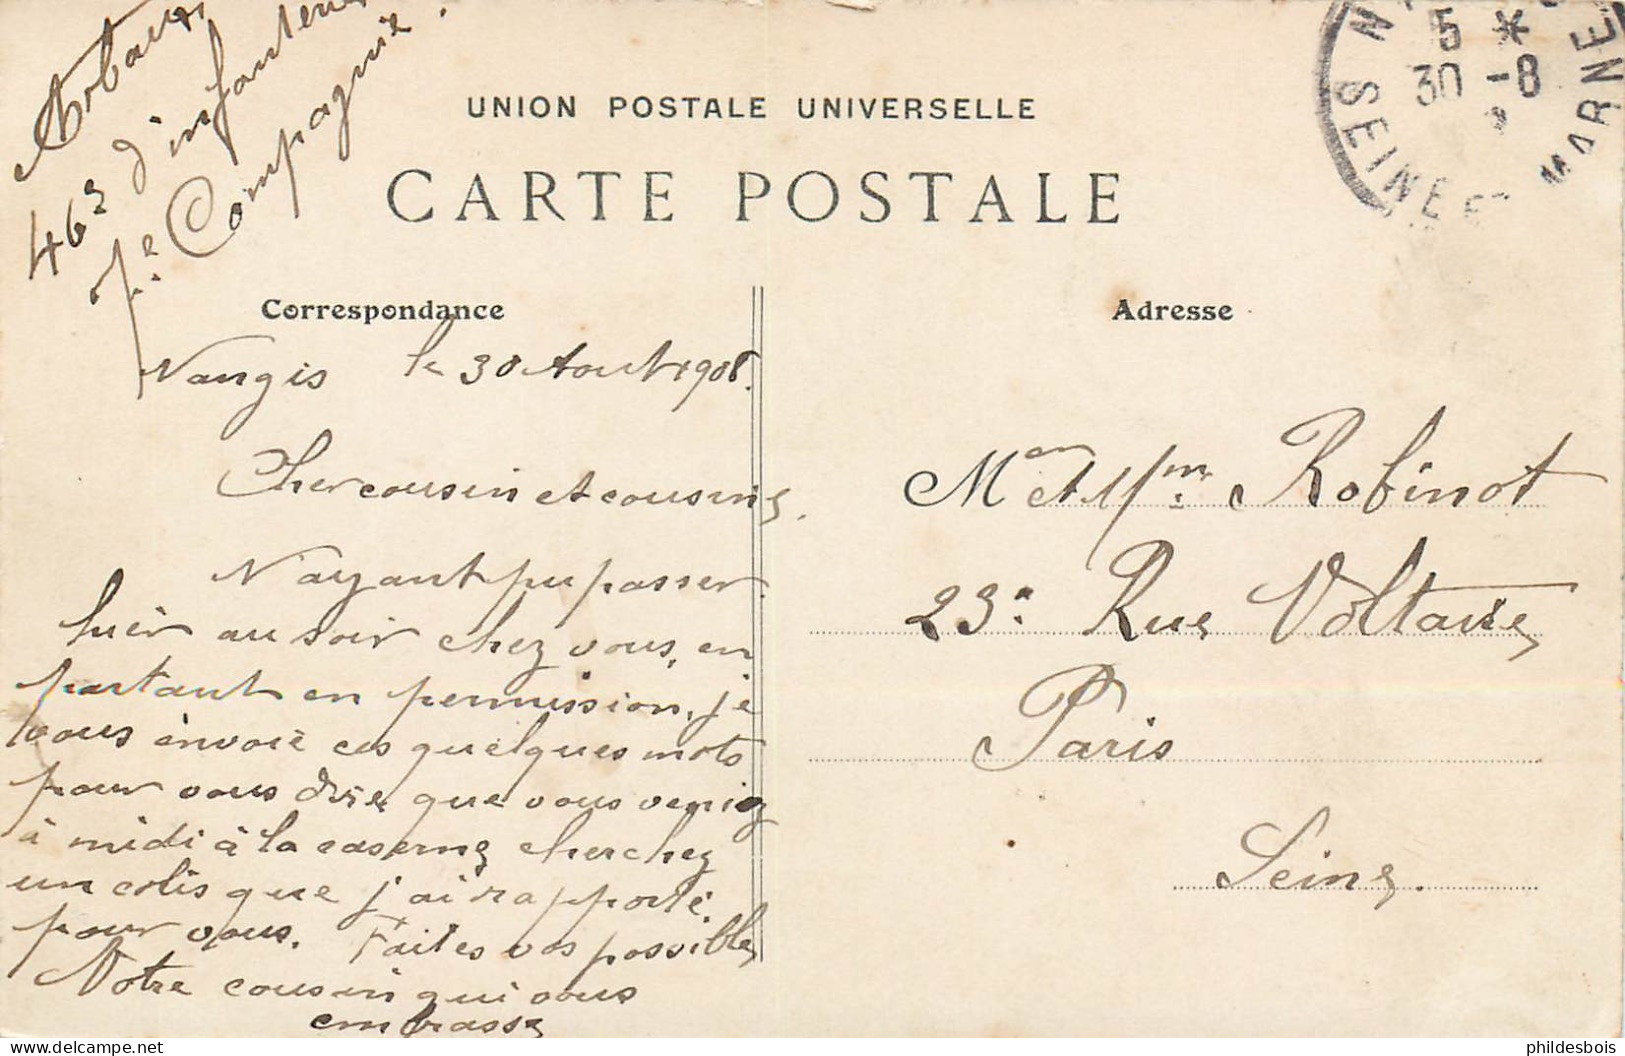 Arbaux
46e d'infanterie
7.e Compagnie.
UNION POSTALE UNIVERSELLE
CARTE POSTALE
5 *
30 -8
SEINE ET MARNE
Correspondance
Adresse
Nangis le 30 Aout 1908.
Cher cousin et cousine.
N'ayant pu passer
hier au soir chez vous, en
partant en permission, je
vous envoie ces quelques mots
pour vous dire que vous veniez
à midi à la caserne cherchez
un colis que j'ai rapporté
pour vous. Faites vos possibles
Votre cousin qui vous
embrasse
Mr et Mme Robinot
23. Rue Voltaire
Paris
Seine.
phildesbois